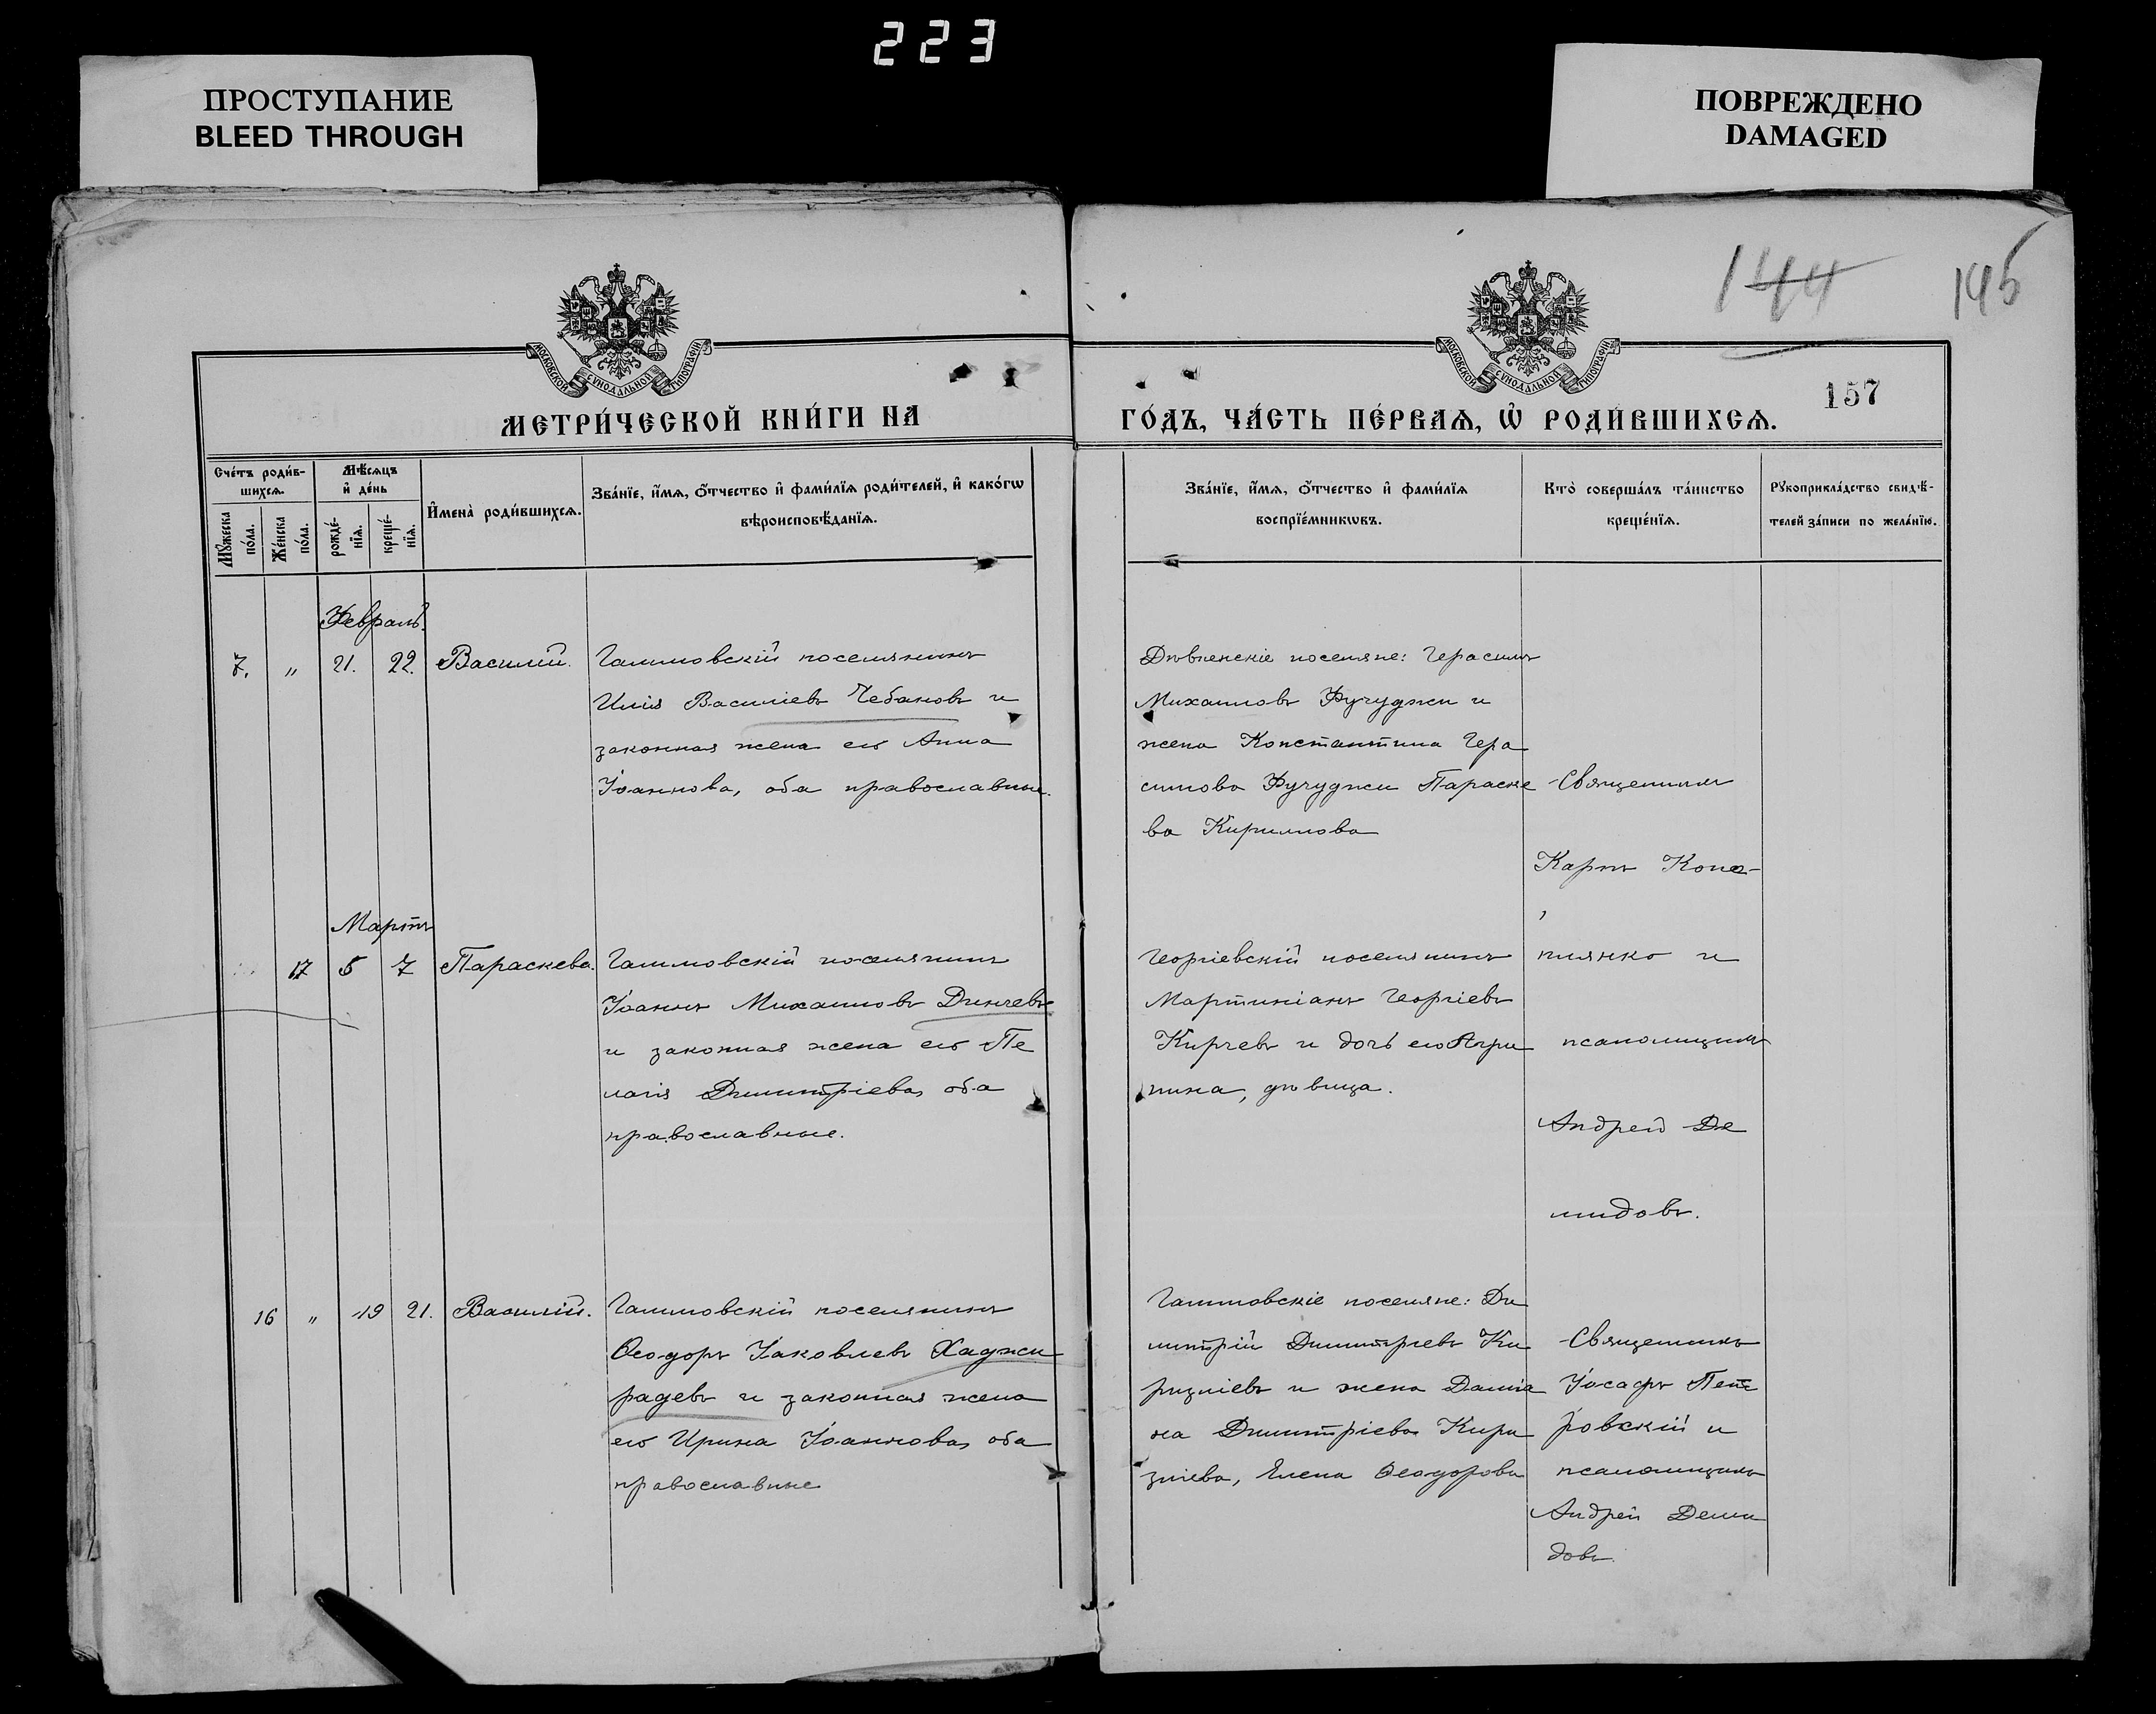 223
ПРОСТУПАНИЕ
BLEED THROUGH
ПОВРЕЖДЕНО
DAMAGED
144
145
157
МОСКОВСКОЙ СѴНОДАЛЬНОЙ ТИПОГРАФІИ
МОСКОВСКОЙ СѴНОДАЛЬНОЙ ТИПОГРАФІИ
МЕТРИ́ЧЕСКОЙ КНИ́ГИ НА
ГО́ДЪ, ЧА́СТЬ ПЕ́РВАѦ, Ѡ҆ РОДИ́ВШИХСѦ.
Сче́тъ роди́в-
шихсѧ.
Мꙋ́жеска по́ла.
Же́нска по́ла.
Мѣ́сѧцъ
и҆ де́нь
рожде́-нїѧ.
креще́-нїѧ.
И҆мена̀ роди́вшихсѧ.
Зва́нїе, и҆́мѧ, ѻ҆́тчество и҆ фами́лїѧ роди́телей, и҆ како́гѡ
вѣроисповѣ́данїѧ.
Зва́нїе, и҆́мѧ, ѻ҆́тчество и҆ фами́лїѧ
воспрїе́мникѡвъ.
Кто̀ соверша́лъ та́инство
креще́нїѧ.
Рꙋкоприкла́дство свидѣ́-
телей за́писи по жела́нїю.
Февраль.
7. " 21. 22. Василій.
Галиловскій поселянинъ
Илія Василіевъ Чебановъ и
законная жена его Анна
Іоаннова, оба православные.
поселяне: Герасимъ
Михаиловъ Фучуджи и
жена Константина Гера
симова Фучуджи Параске
ва Кириллова
Священникъ
Карпъ Копа-
Мартъ
17 5 7 Параскева.
Галиловскій поселянинъ
Іоаннъ Михаиловъ Динчевъ
и законная жена его Пе
лагія Димитріева, оба
православные.
Георгіевскій поселянинъ
Мартиніанъ Георгіевъ
Кирчевъ и дочь его Агри
пина, дѣвица.
нлянко и
псаломщикъ
Андрей Де
мидовъ.
16 " 19 21. Василій.
Галиловскій поселянинъ
Ѳеодоръ Іаковлевъ Хаджи
радевъ и законная жена
его Ирина Іоаннова, оба
православные
Галиловскіе поселяне: Ди
митрій Димитріевъ Ки
ризліевъ и жена
на Димитріева Кири
зліева, Елена Ѳеодорова
Священникъ
Іосафъ Пет
ровскій и
псаломщикъ
Андрей Деми
довъ.